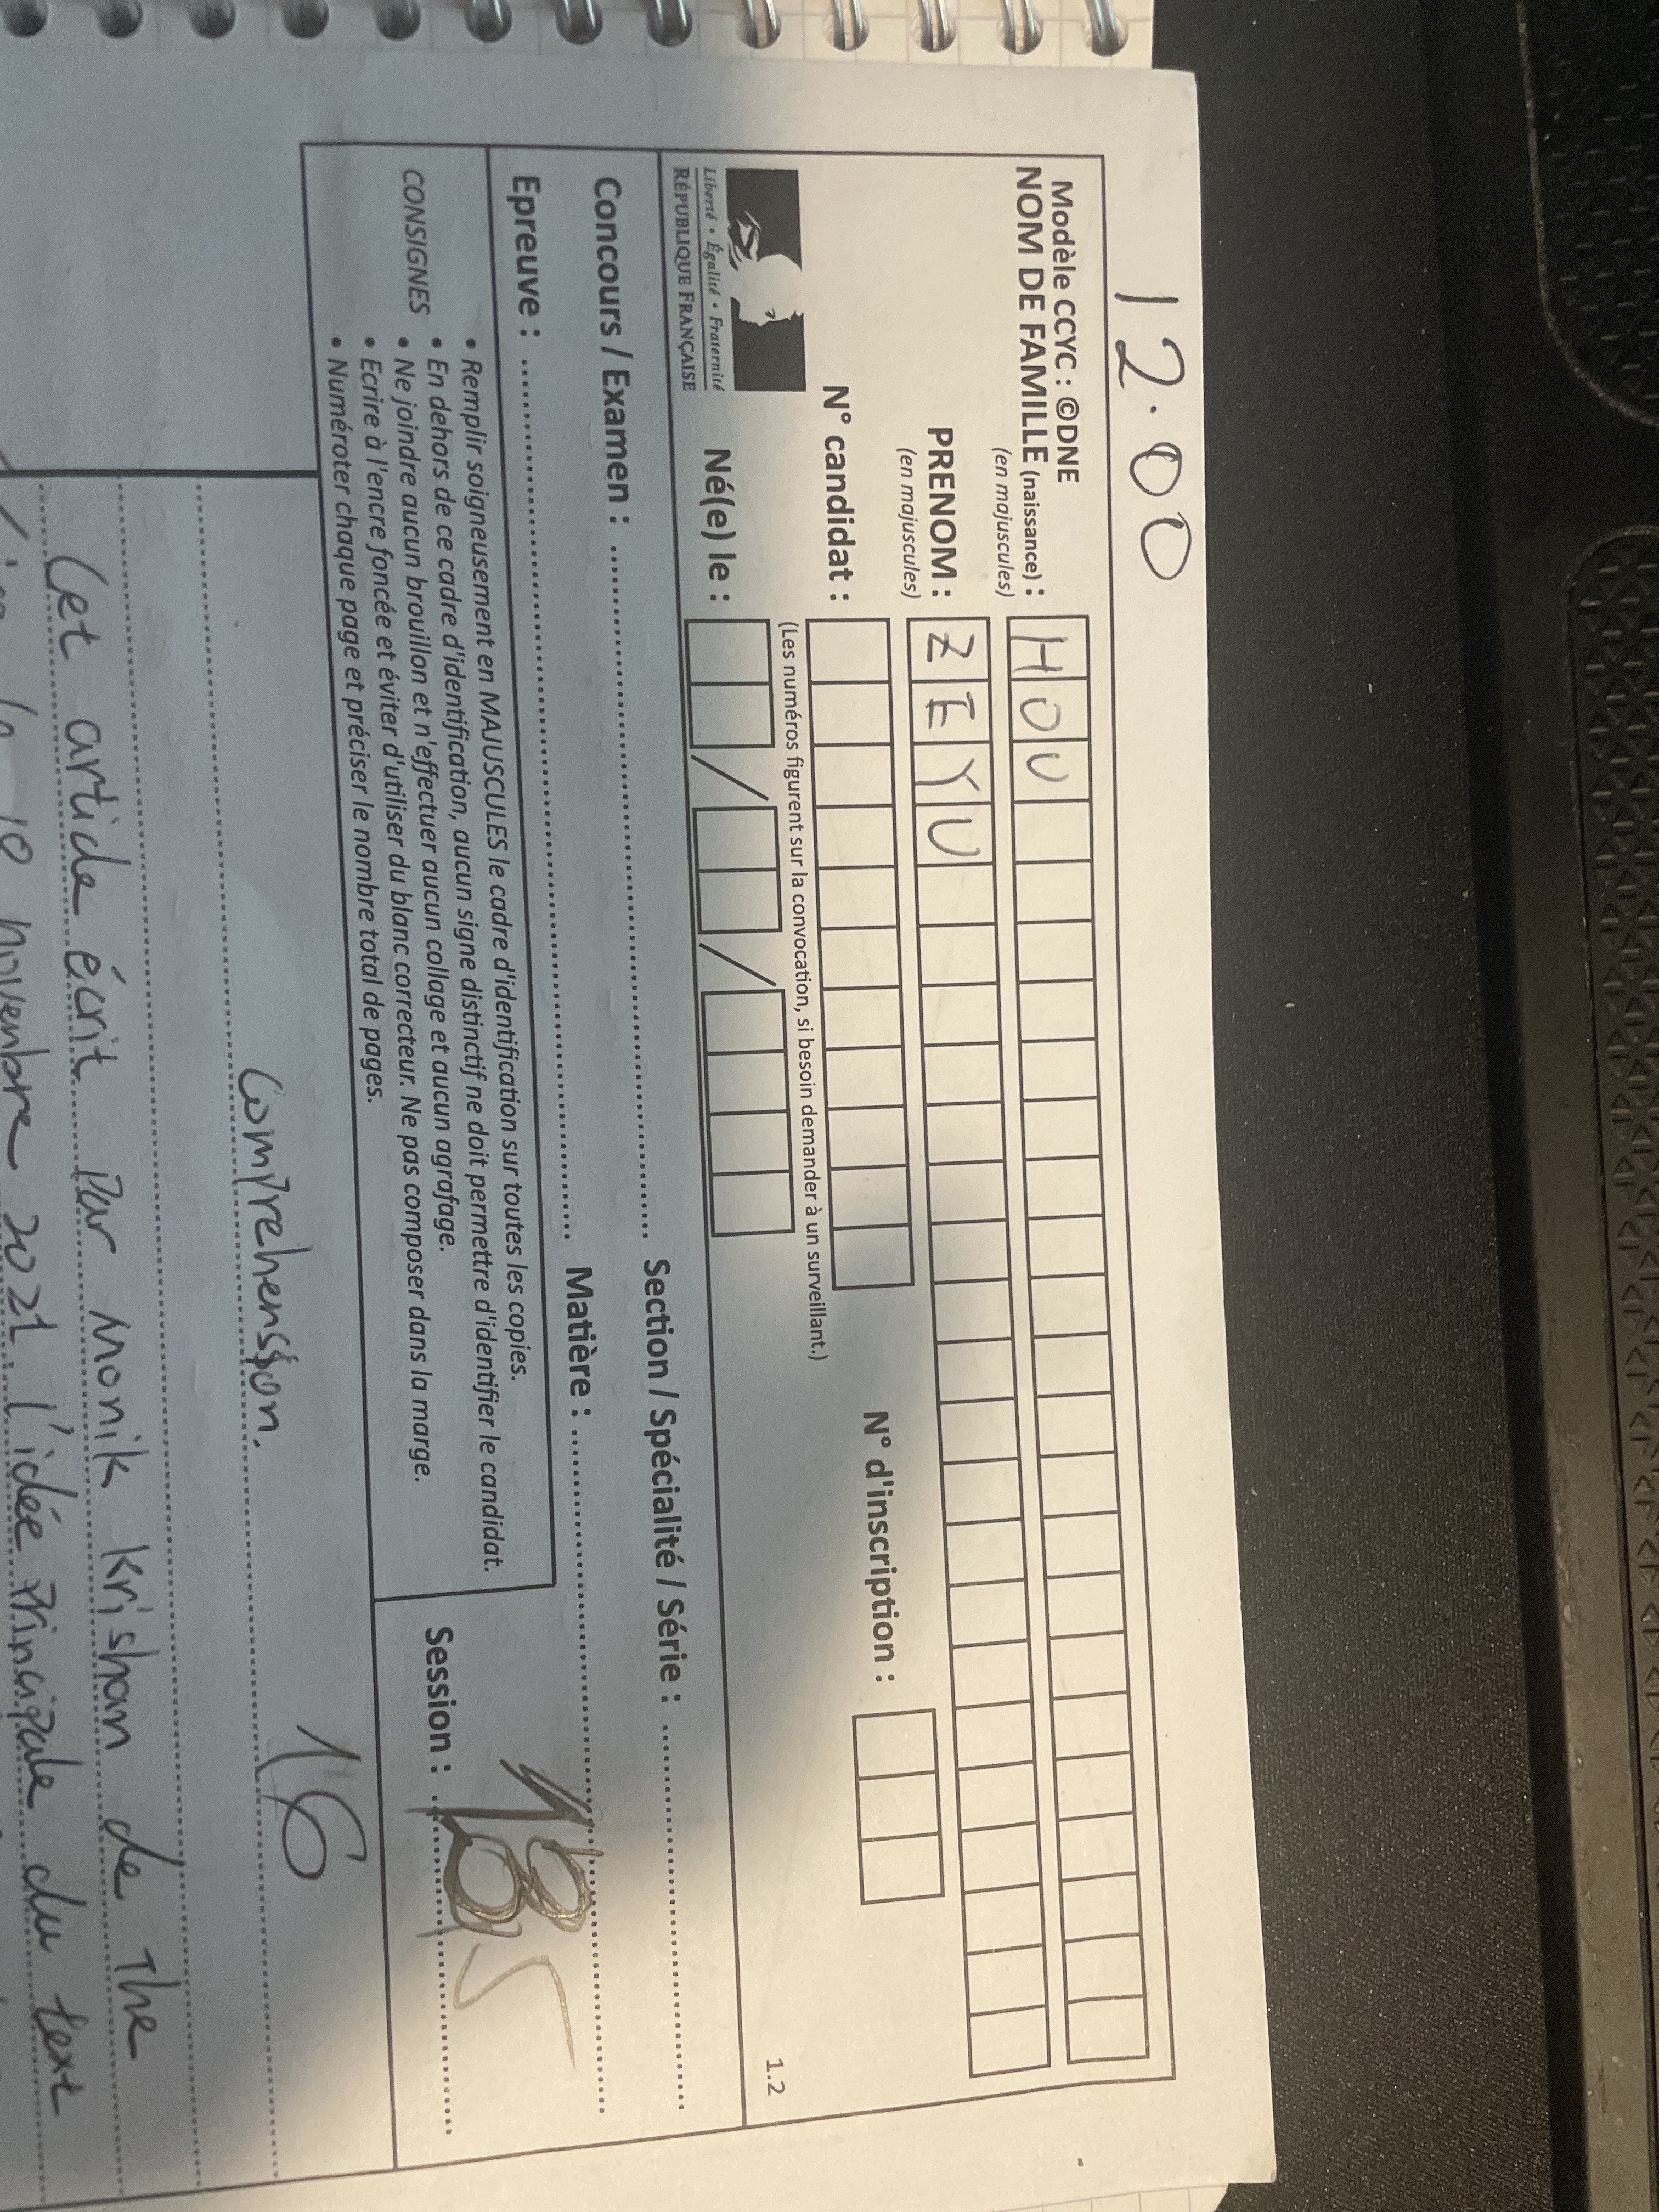 12.00
Modèle CCYC : ©DNE
NOM DE FAMILLE (naissance) : HOU
(en majuscules)
PRENOM : ZEYU
(en majuscules)
N° candidat :
N° d'inscription :
(Les numéros figurent sur la convocation, si besoin demander à un surveillant.)
1.2
Né(e) le : / /
Liberté • Égalité • Fraternité
RÉPUBLIQUE FRANÇAISE
Concours / Examen : Section / Spécialité / Série :
Epreuve : Matière :
CONSIGNES
• Remplir soigneusement en MAJUSCULES le cadre d'identification sur toutes les copies.
• En dehors de ce cadre d'identification, aucun signe distinctif ne doit permettre d'identifier le candidat.
• Ne joindre aucun brouillon et n'effectuer aucun collage et aucun agrafage.
• Ecrire à l'encre foncée et éviter d'utiliser du blanc correcteur. Ne pas composer dans la marge.
• Numéroter chaque page et préciser le nombre total de pages.
Session :
16
Comprehension.
Cet article écrit par Monik Krishan de The
le 10 novenbre 2021. l'idée principale du text